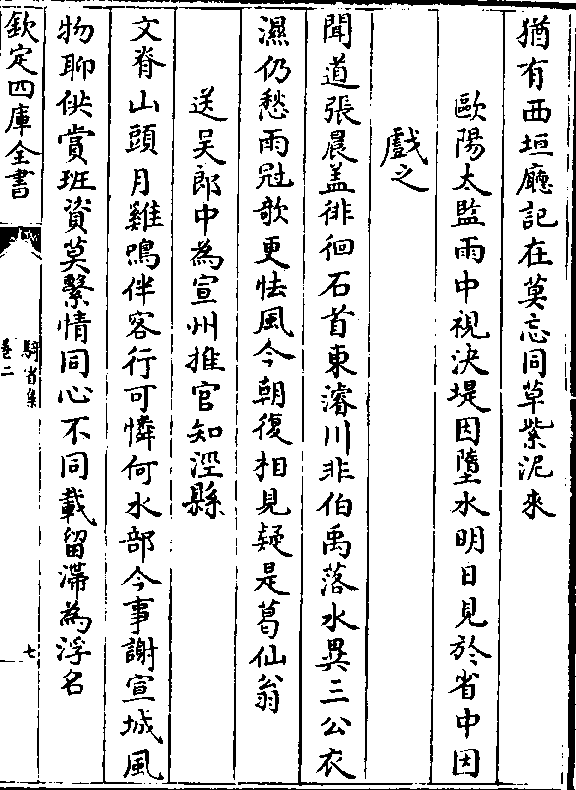 猶有西垣廳記在莫忘同草紫泥來
歐陽太監雨中視決堤因墮水明日見於省中因
戲之
聞道張晨蓋徘徊石首東濬川非伯禹落水異三公衣
濕仍愁雨冠欹更怯風今朝復相見疑是葛仙翁
送吴郎中為宣州推官知涇縣
文脊山頭月雞鳴伴客行可憐何水部今事謝宣城風
物聊供賞班資莫繫情同心不同載留滯為浮名
欽定四庫全書
騎省集
卷二
七